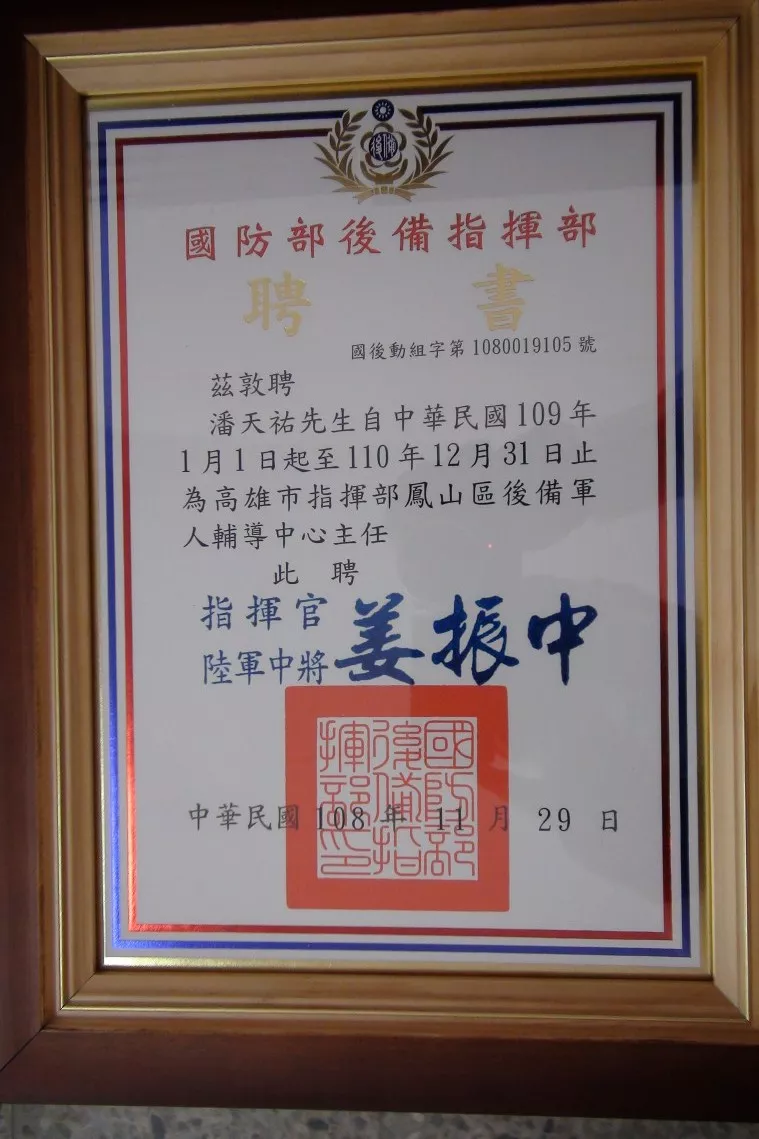 後備
國防部後備指揮部
聘書
國後動組字第1080019105號
茲敦聘
潘天祐先生自中華民國109年
1月1日起至110年12月31日止
為高雄市指揮部鳳山區後備軍
人輔導中心主任
此聘
指揮官
陸軍中將 姜振中
國防部後備指揮部印
中華民國108年11月29日